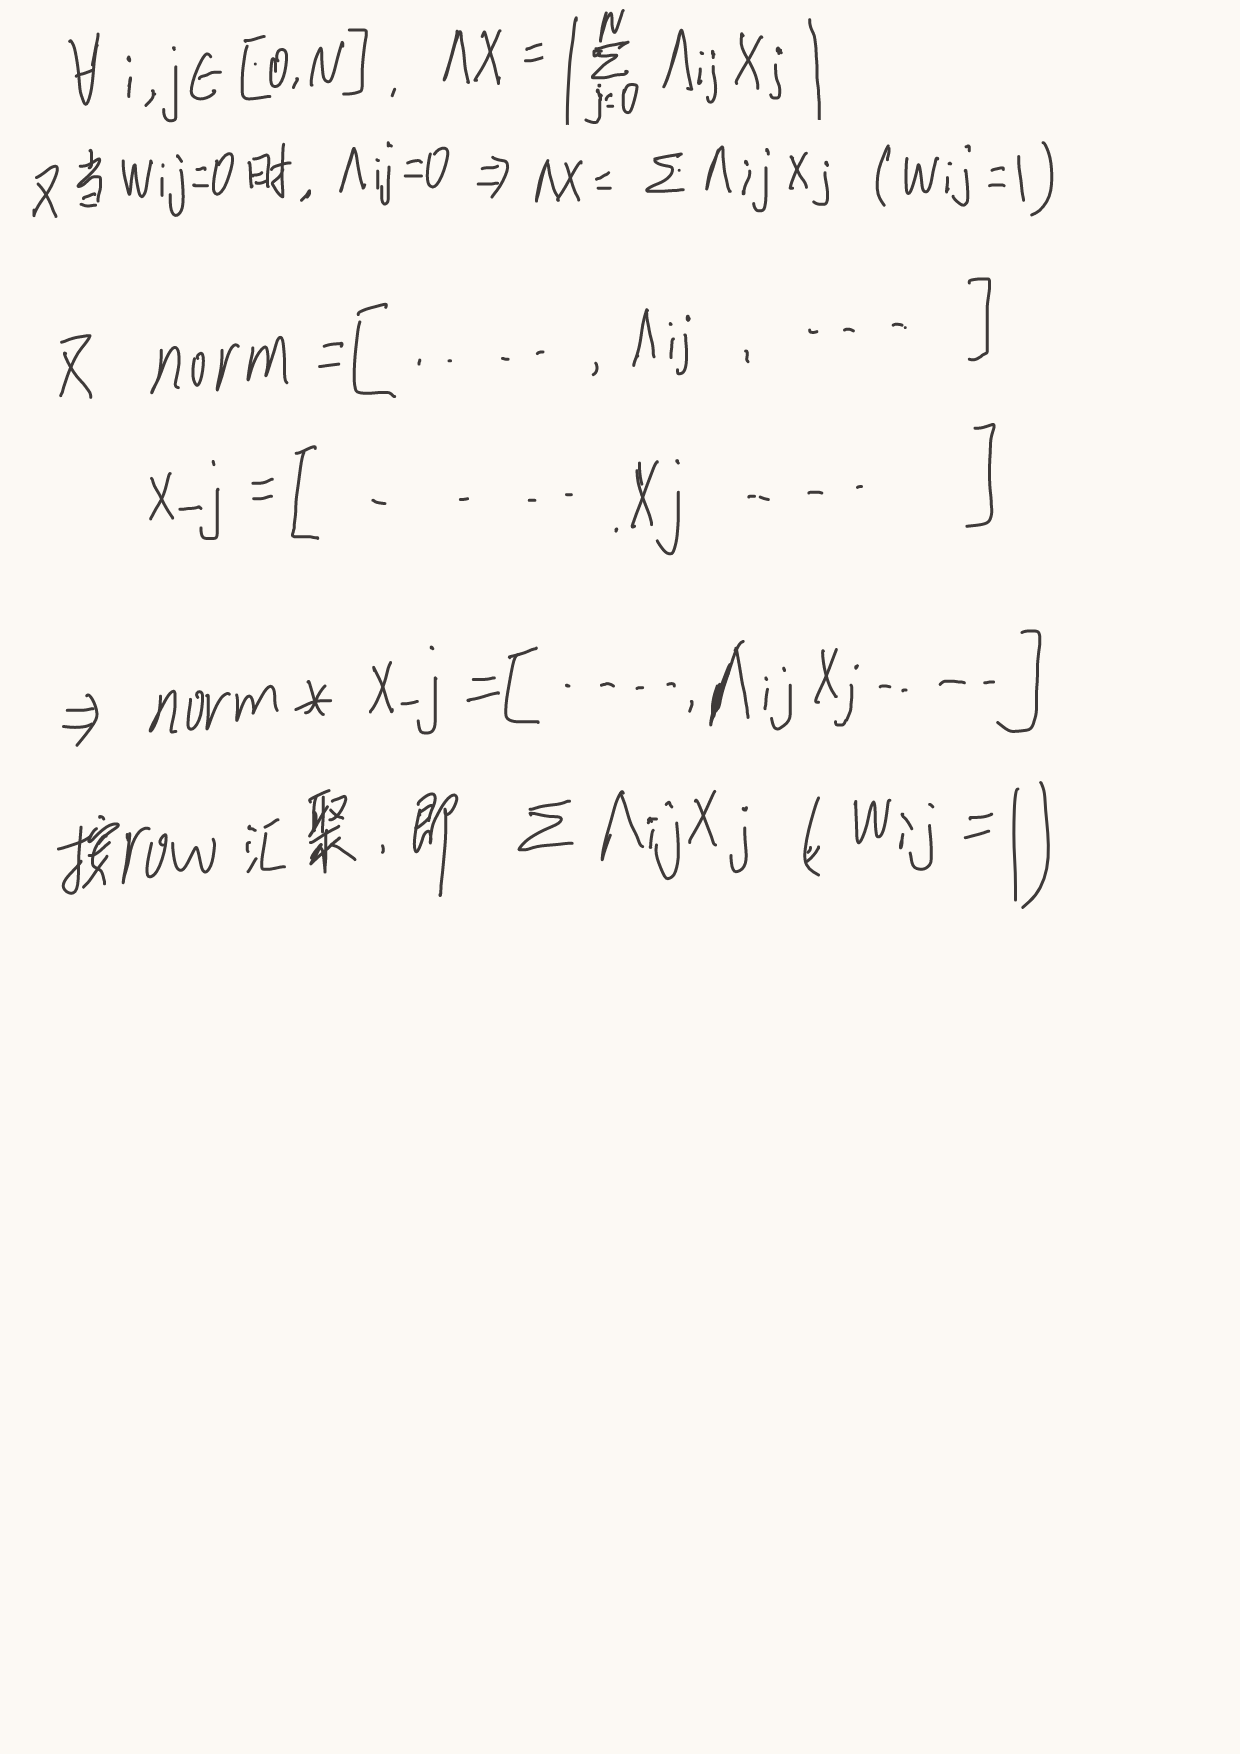 ∀ i,j∈[0,N], ΛX = |∑_{j=0}^{N} Λij Xj|
又当Wij=0时, Λij=0 ⇒ ΛX = ∑ Λij Xj (Wij=1)
又 norm = [ ‥‥, Λij , ‥‥ ]
x_j = [ ‥‥ , Xj ‥‥ ]
⇒ norm * x_j = [ ‥‥, Λij Xj ‥‥ ]
按row汇聚, 即 ∑ Λij Xj (Wij=1)